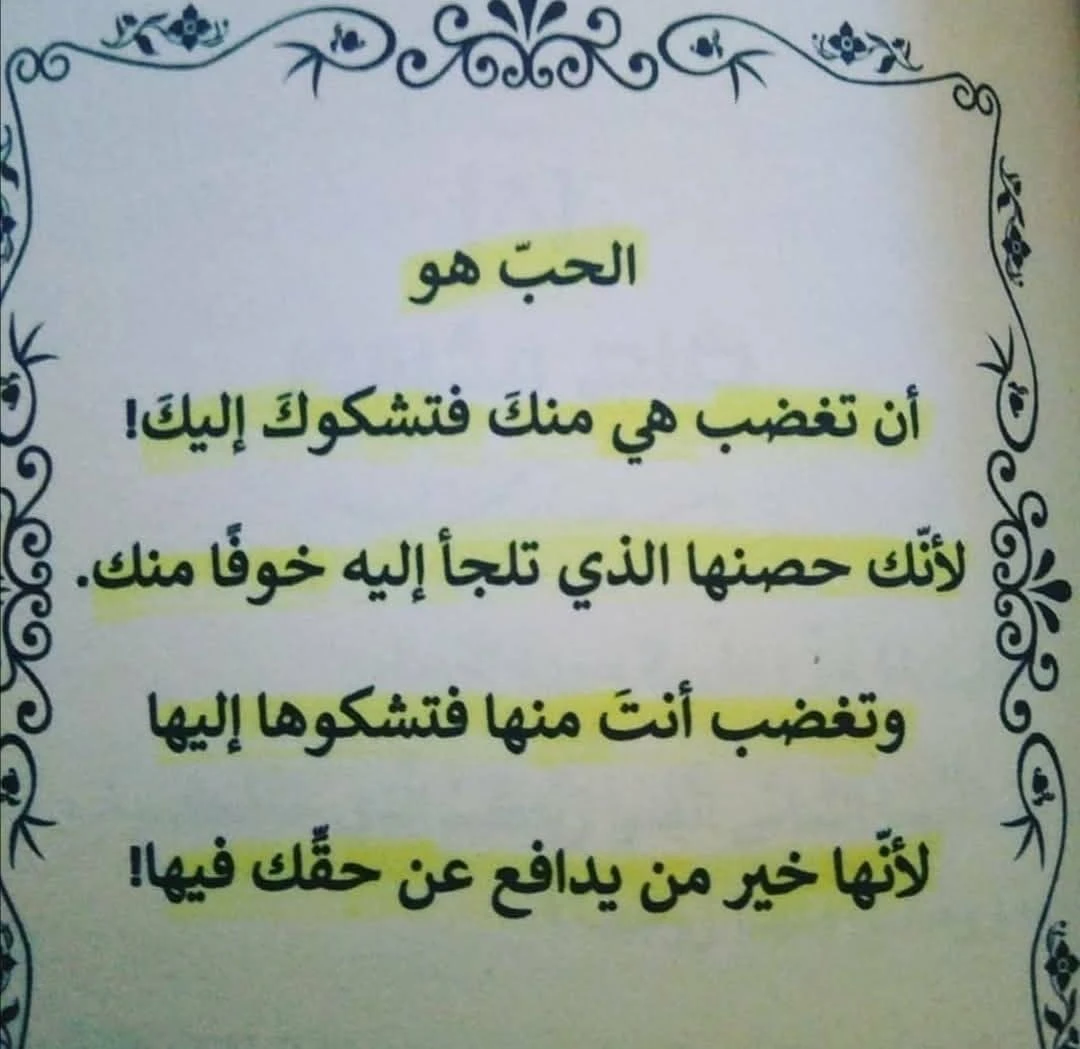 الحبّ هو
أن تغضب هي منكَ فتشكوكَ إليكَ!
لأنّك حصنها الذي تلجأ إليه خوفًا منك.
وتغضب أنتَ منها فتشكوها إليها
لأنّها خير من يدافع عن حقِّك فيها!